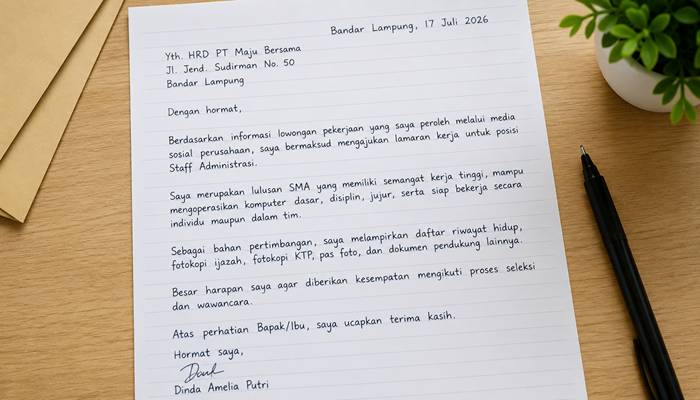 Bandar Lampung, 17 Juli 2026
Yth. HRD PT Maju Bersama
Jl. Jend. Sudirman No. 50
Bandar Lampung
Dengan hormat,
Berdasarkan informasi lowongan pekerjaan yang saya peroleh melalui media
sosial perusahaan, saya bermaksud mengajukan lamaran kerja untuk posisi
Staff Administrasi.
Saya merupakan lulusan SMA yang memiliki semangat kerja tinggi, mampu
mengoperasikan komputer dasar, disiplin, jujur, serta siap bekerja secara
individu maupun dalam tim.
Sebagai bahan pertimbangan, saya melampirkan daftar riwayat hidup,
fotokopi ijazah, fotokopi KTP, pas foto, dan dokumen pendukung lainnya.
Besar harapan saya agar diberikan kesempatan mengikuti proses seleksi
dan wawancara.
Atas perhatian Bapak/Ibu, saya ucapkan terima kasih.
Hormat saya,
Dinda Amelia Putri